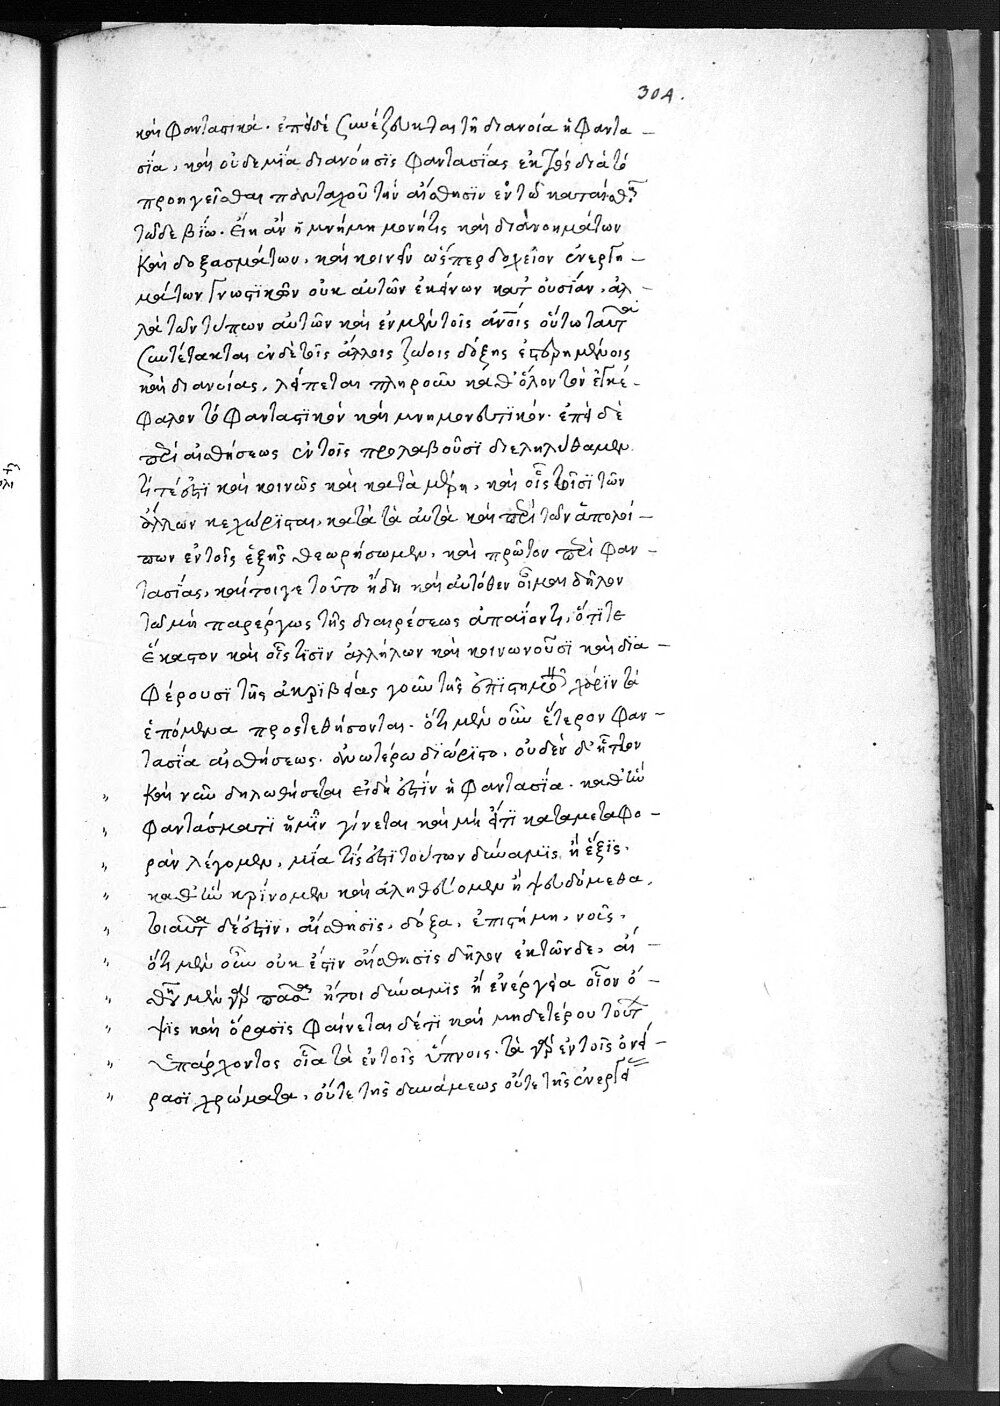 304.
καὶ φανταστικά. ἐπεὶ δὲ συνέζευκται τῇ διανοίᾳ ἡ φαντα –
σία, καὶ οὐδεμία διανόησις φαντασίας ἐκτὸς διὰ τὸ
προηγεῖσθαι πανταχοῦ τὴν αἴσθησιν ἐν τῷ
τῷδε βίῳ. εἴη ἂν ἡ μνήμη μονῆς τις καὶ διανοημάτων
καὶ δοξασμάτων, καὶ κοινὸν ὥσπερ δοχεῖον ἐνεργη –
μάτων γνωστικῶν οὐκ αὐτῶν ἐκείνων κατ' οὐσίαν, ἀλ –
λὰ τῶν τύπων αὐτῶν καὶ ἐν μὲν τοῖς ἀνοις οὕτω ταῦτα
συντέτακται ἐν δὲ τοῖς ἄλλοις ζώοις δόξης ἐστερημένοις
καὶ διανοίας, λείπεται πληροῦν καθ' ὅλον τὸν ἐγκέ –
φαλον τὸ φανταστικὸν καὶ μνημονευτικόν. ἐπεὶ δὲ
περὶ αἰσθήσεως ἐν τοῖς προλαβοῦσι διεληλύθαμεν
τί τέ ἐστι καὶ κοινῶς καὶ κατὰ μέρη, καὶ οἷς τισὶ τῶν
ἄλλων κεχώρισται, κατὰ τὰ αὐτὰ καὶ περὶ τῶν ἀπολοί –
πων ἐν τοῖς ἑξῆς θεωρήσωμεν, καὶ πρῶτον περὶ φαν –
τασίας, καίτοιγε τοῦτο ἤδη καὶ αὐτόθεν οἶμαι δῆλον
τῷ μὴ παρέργως τῆς διαιρέσεως ἀπαΐοντι, ὅτι τε
ἕκαστον καὶ οἷς τισὶν ἀλλήλων καὶ κοινωνοῦσι καὶ δια –
φέρουσι τῆς ἀκριβείας γοῦν τῆς ἐπιστημονικῆς χάριν τὰ
ἑπόμενα προστεθήσονται. ὅτι μὲν οὖν ἕτερον φαν –
τασία αἰσθήσεως. ἀνωτέρω διώριστο. οὐδὲν δ' ἧττον
" καὶ νῦν δηλωθήσεται εἰ δή ἐστιν ἡ φαντασία. καθ' ἣν
" φαντάσματι ἡμῖν γίνεται καὶ μὴ ἔτι κατὰ μεταφο –
" ρὰν λέγομεν, μία τίς ἐστι τούτων δύναμις ἢ ἕξις.
" καθ' ἣν κρίνομεν καὶ ἀληθεύομεν ἢ ψευδόμεθα.
" τοιαῦται δέ εἰσιν, αἴσθησις, δόξα, ἐπιστήμη, νοῦς.
" ὅτι μὲν οὖν οὐκ ἔστιν αἴσθησις δῆλον ἐκ τῶνδε. αἴ –
" σθησις μὲν γὰρ πᾶσα ἤτοι δύναμις ἢ ἐνέργεια οἷον ὄ –
" ψις καὶ ὅρασις φαίνεται δέ τι καὶ μηδετέρου τούτων
" ὑπάρχοντος οἷα τὰ ἐν τοῖς ὕπνοις. τὰ γὰρ ἐν τοῖς ὀνεί –
" ρασι χρώματα, οὔτε τῆς δυνάμεως οὔτε τῆς ἐνεργεί =